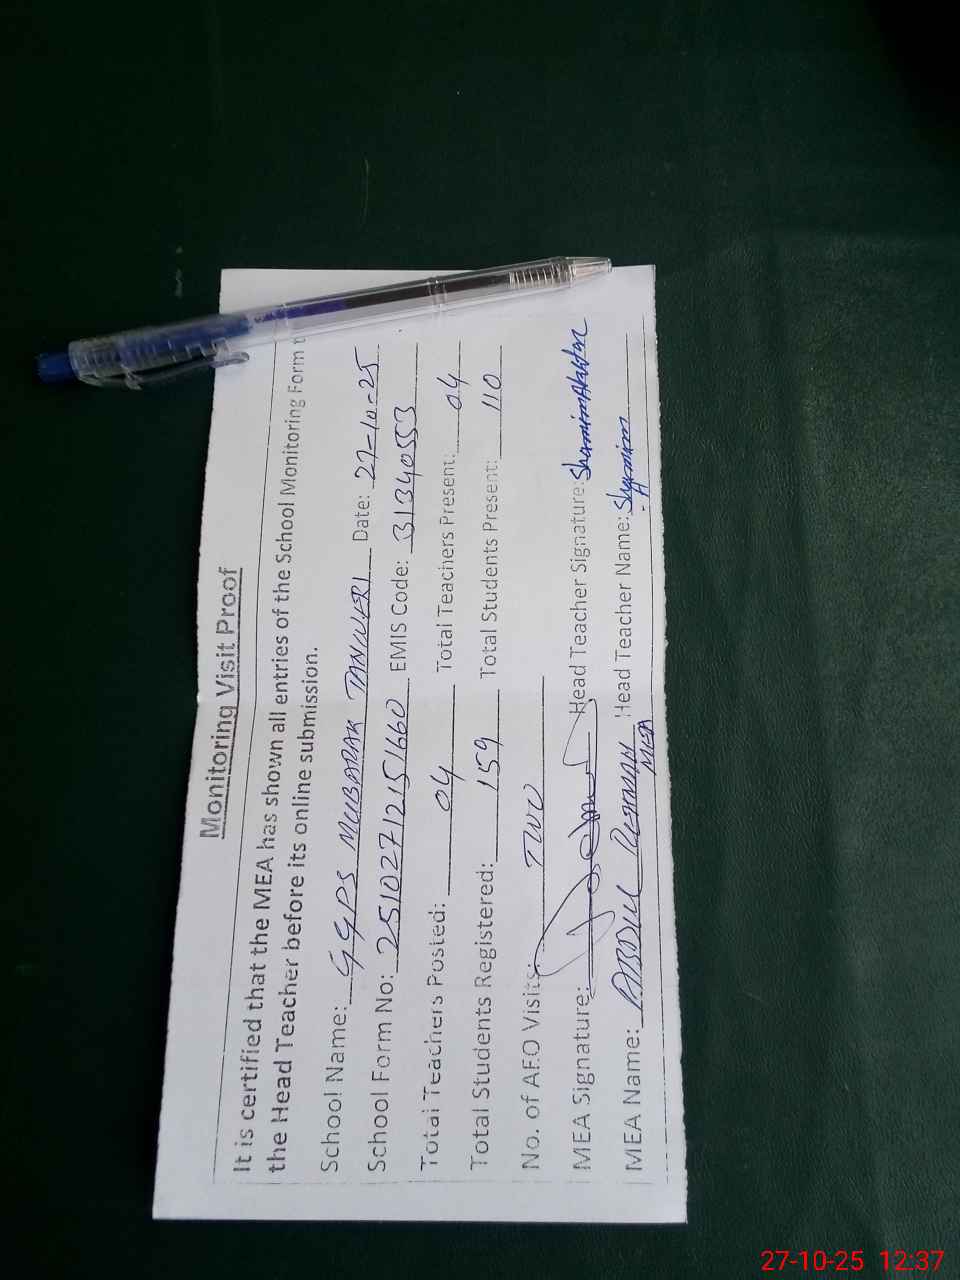 Monitoring Visit Proof
It is certified that the MEA has shown all entries of the School Monitoring Form t
the Head Teacher before its online submission.
School Name: GGPS MUBARAK TANWERI Date: 27-10-25
School Form No: 25102712151660 EMIS Code: 31340553
Total Teachers Posted: 04 Total Teachers Present: 04
Total Students Registered: 159 Total Students Present: 110
No. of AEO Visits: TWO
MEA Signature: Head Teacher Signature: Shamim Akhtar
MEA Name: ABDUL REHMAN Head Teacher Name: Shamim
MEA
27-10-25 12:37